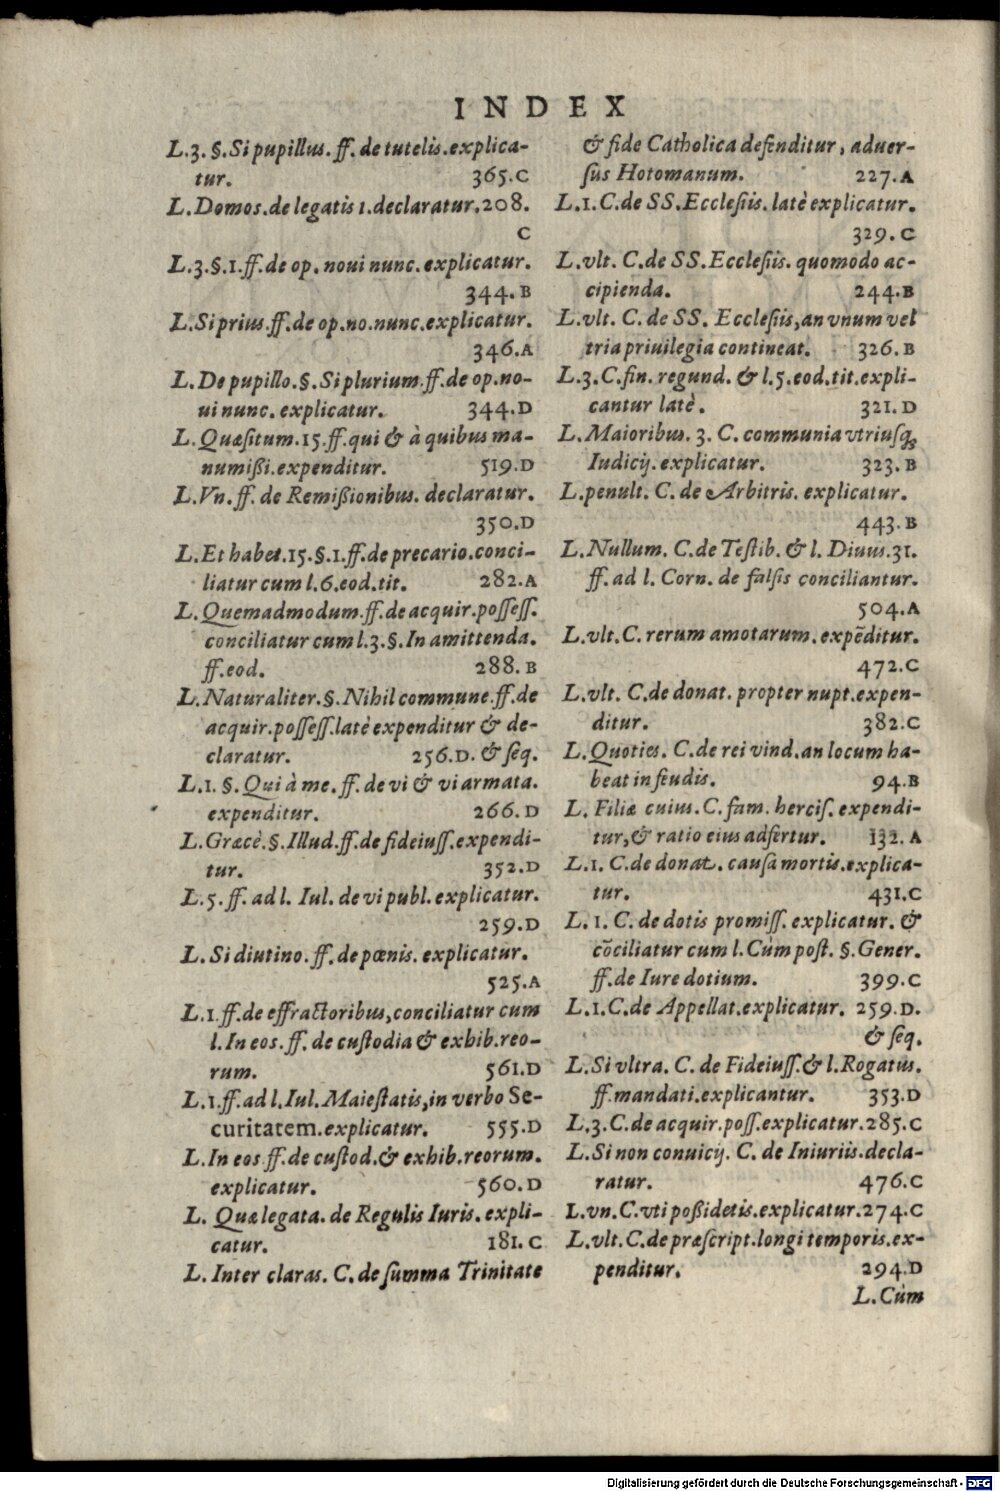 INDEX
L.3. §. Si pupillus. ff. de tutelis. explica-
tur. 365.C
L. Domos. de legatis 1. declaratur. 208.
C
L.3. §.1. ff. de op. noui nunc. explicatur.
344.B
L. Si prius. ff. de op. no. nunc. explicatur.
346.A
L. De pupillo. §. Si plurium. ff. de op. no-
ui nunc. explicatur. 344.D
L. Quæsitum. 15. ff. qui & à quibus ma-
numißi. expenditur. 519.D
L. Vn. ff. de Remißionibus. declaratur.
350.D
L. Et habet. 15. §.1. ff. de precario. conci-
liatur cum l.6. eod. tit. 282.A
L. Quemadmodum. ff. de acquir. poſſeſſ.
conciliatur cum l.3. §. In amittenda.
ff. eod. 288.B
L. Naturaliter. §. Nihil commune. ff. de
acquir. poſſeſſ. latè expenditur & de-
claratur. 256.D. & ſeq.
L.1. §. Qui à me. ff. de vi & vi armata.
expenditur. 266.D
L. Græcè. §. Illud. ff. de fideiuſſ. expendi-
tur. 352.D
L.5. ff. ad l. Iul. de vi publ. explicatur.
259.D
L. Si diutino. ff. de pœnis. explicatur.
525.A
L.1. ff. de effractoribus, conciliatur cum
l. In eos. ff. de cuſtodia & exhib. reo-
rum. 561.D
L.1. ff. ad l. Iul. Maieſtatis, in verbo Se-
curitatem. explicatur. 555.D
L. In eos ff. de cuſtod. & exhib. reorum.
explicatur. 560.D
L. Quæ legata. de Regulis Iuris. expli-
catur. 181.C
L. Inter claras. C. de ſumma Trinitate
& fide Catholica defenditur, aduer-
ſus Hotomanum. 227.A
L.1. C. de SS. Eccleſiis. latè explicatur.
329.C
L. vlt. C. de SS. Eccleſiis. quomodo ac-
cipienda. 244.B
L. vlt. C. de SS. Eccleſiis, an vnum vel
tria priuilegia contineat. 326.B
L.3. C. fin. regund. & l.5. eod. tit. expli-
cantur latè. 321.D
L. Maioribus. 3. C. communia vtriuſq;
Iudicij. explicatur. 323.B
L. penult. C. de Arbitris. explicatur.
443.B
L. Nullum. C. de Teſtib. & l. Diuus. 31.
ff. ad l. Corn. de falſis conciliantur.
504.A
L. vlt. C. rerum amotarum. expẽditur.
472.C
L. vlt. C. de donat. propter nupt. expen-
ditur. 382.C
L. Quoties. C. de rei vind. an locum ha-
beat in feudis. 94.B
L. Filiæ cuius. C. fam. herciſ. expendi-
tur, & ratio eius adfertur. 132.A
L.1. C. de donat. cauſa mortis. explica-
tur. 431.C
L.1. C. de dotis promiſſ. explicatur. &
cõciliatur cum l. Cùm poſt. §. Gener.
ff. de Iure dotium. 399.C
L.1. C. de Appellat. explicatur. 259.D.
& ſeq.
L. Si vltra. C. de Fideiuſſ. & l. Rogatus.
ff. mandati. explicantur. 353.D
L.3. C. de acquir. poſſ. explicatur. 285.C
L. Si non conuicij. C. de Iniuriis. decla-
ratur. 476.C
L. vn. C. vti poßidetis. explicatur. 274.C
L. vlt. C. de præſcript. longi temporis. ex-
penditur. 294.D
L. Cùm
Digitalisierung gefördert durch die Deutsche Forschungsgemeinschaft - DFG